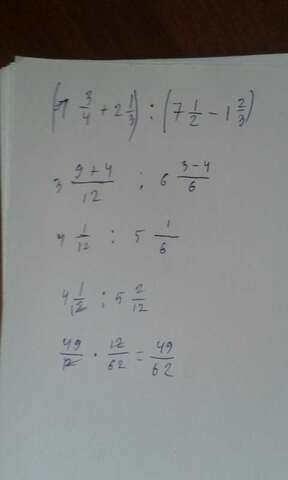 (1 3/4 + 2 1/3) : (7 1/2 − 1 2/3)
3 9+4/12 : 6 3−4/6
4 1/12 : 5 1/6
4 1/12 : 5 2/12
49/12 · 12/62 = 49/62